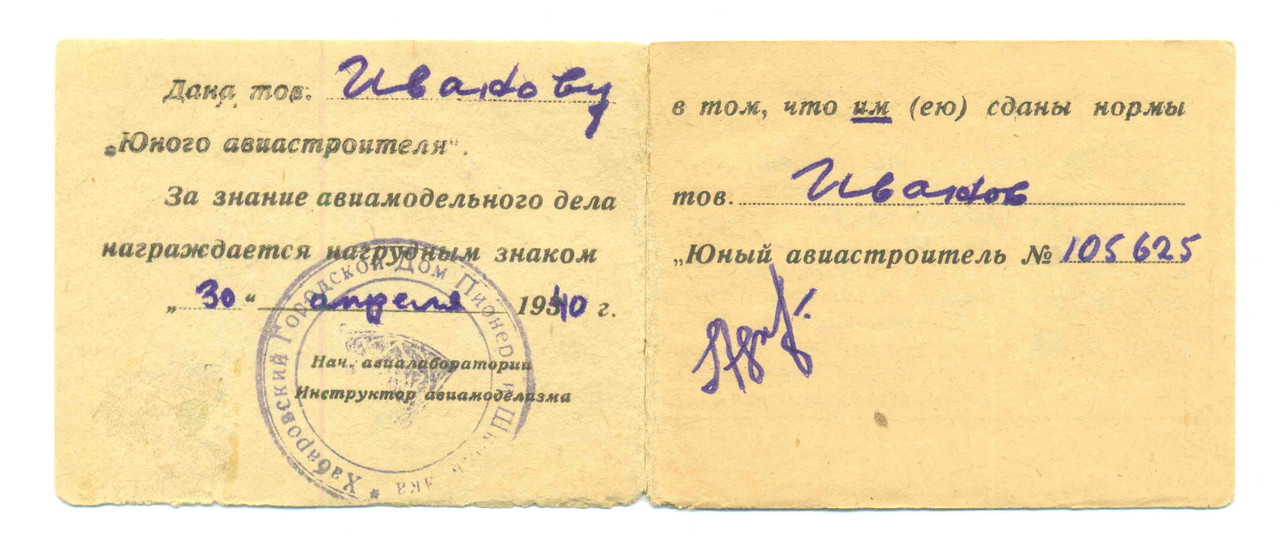 Дана тов. Иванову
„Юного авиастроителя“.
За знание авиамодельного дела
награждается нагрудным знаком
„30“ апреля 1940 г.
Нач. авиалаборатории
Инструктор авиамоделизма
Хабаровский Городской Дом Пионер
в том, что им (ею) сданы нормы
тов. Иванов
„Юный авиастроитель № 105625